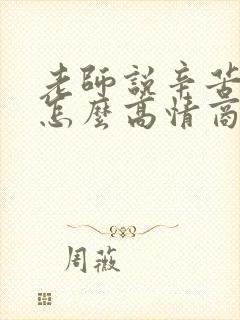 老師說辛苦
怎麼高情商
周薇